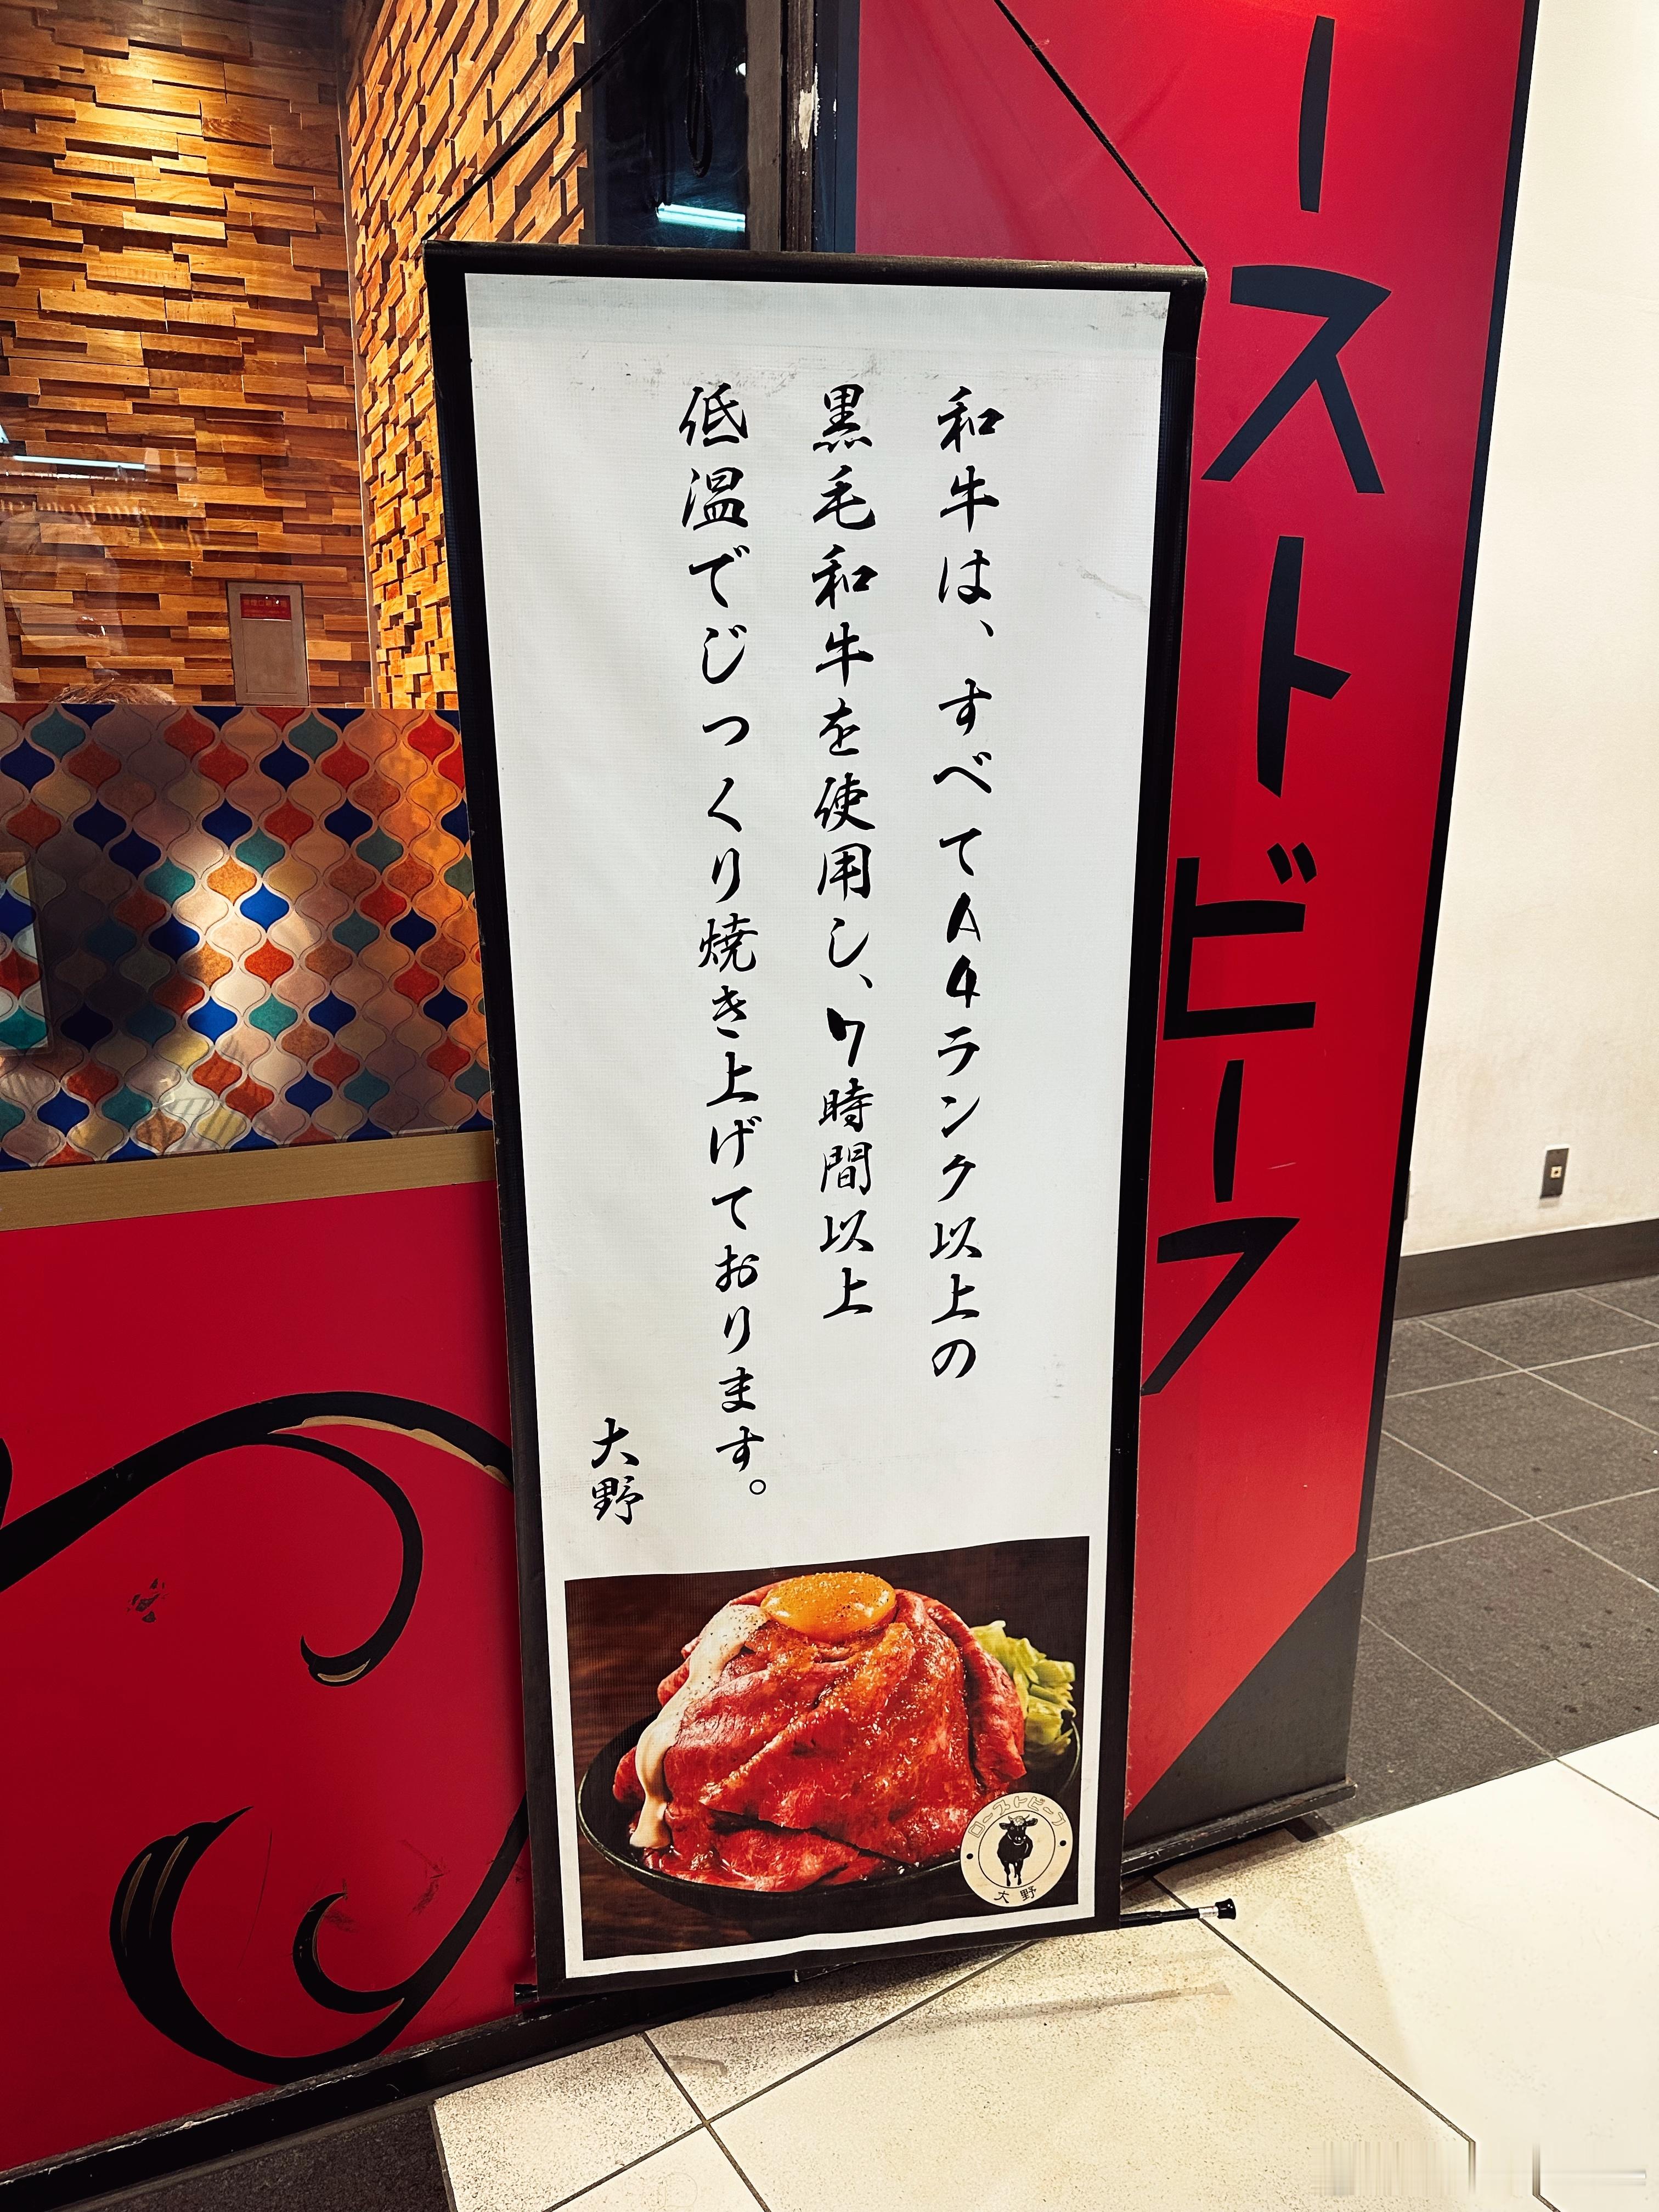 和牛は、すべてA4ランク以上の
黒毛和牛を使用し、7時間以上
低温でじっくり焼き上げております。
大野
ーストビーフ
ローストビーフ
大野